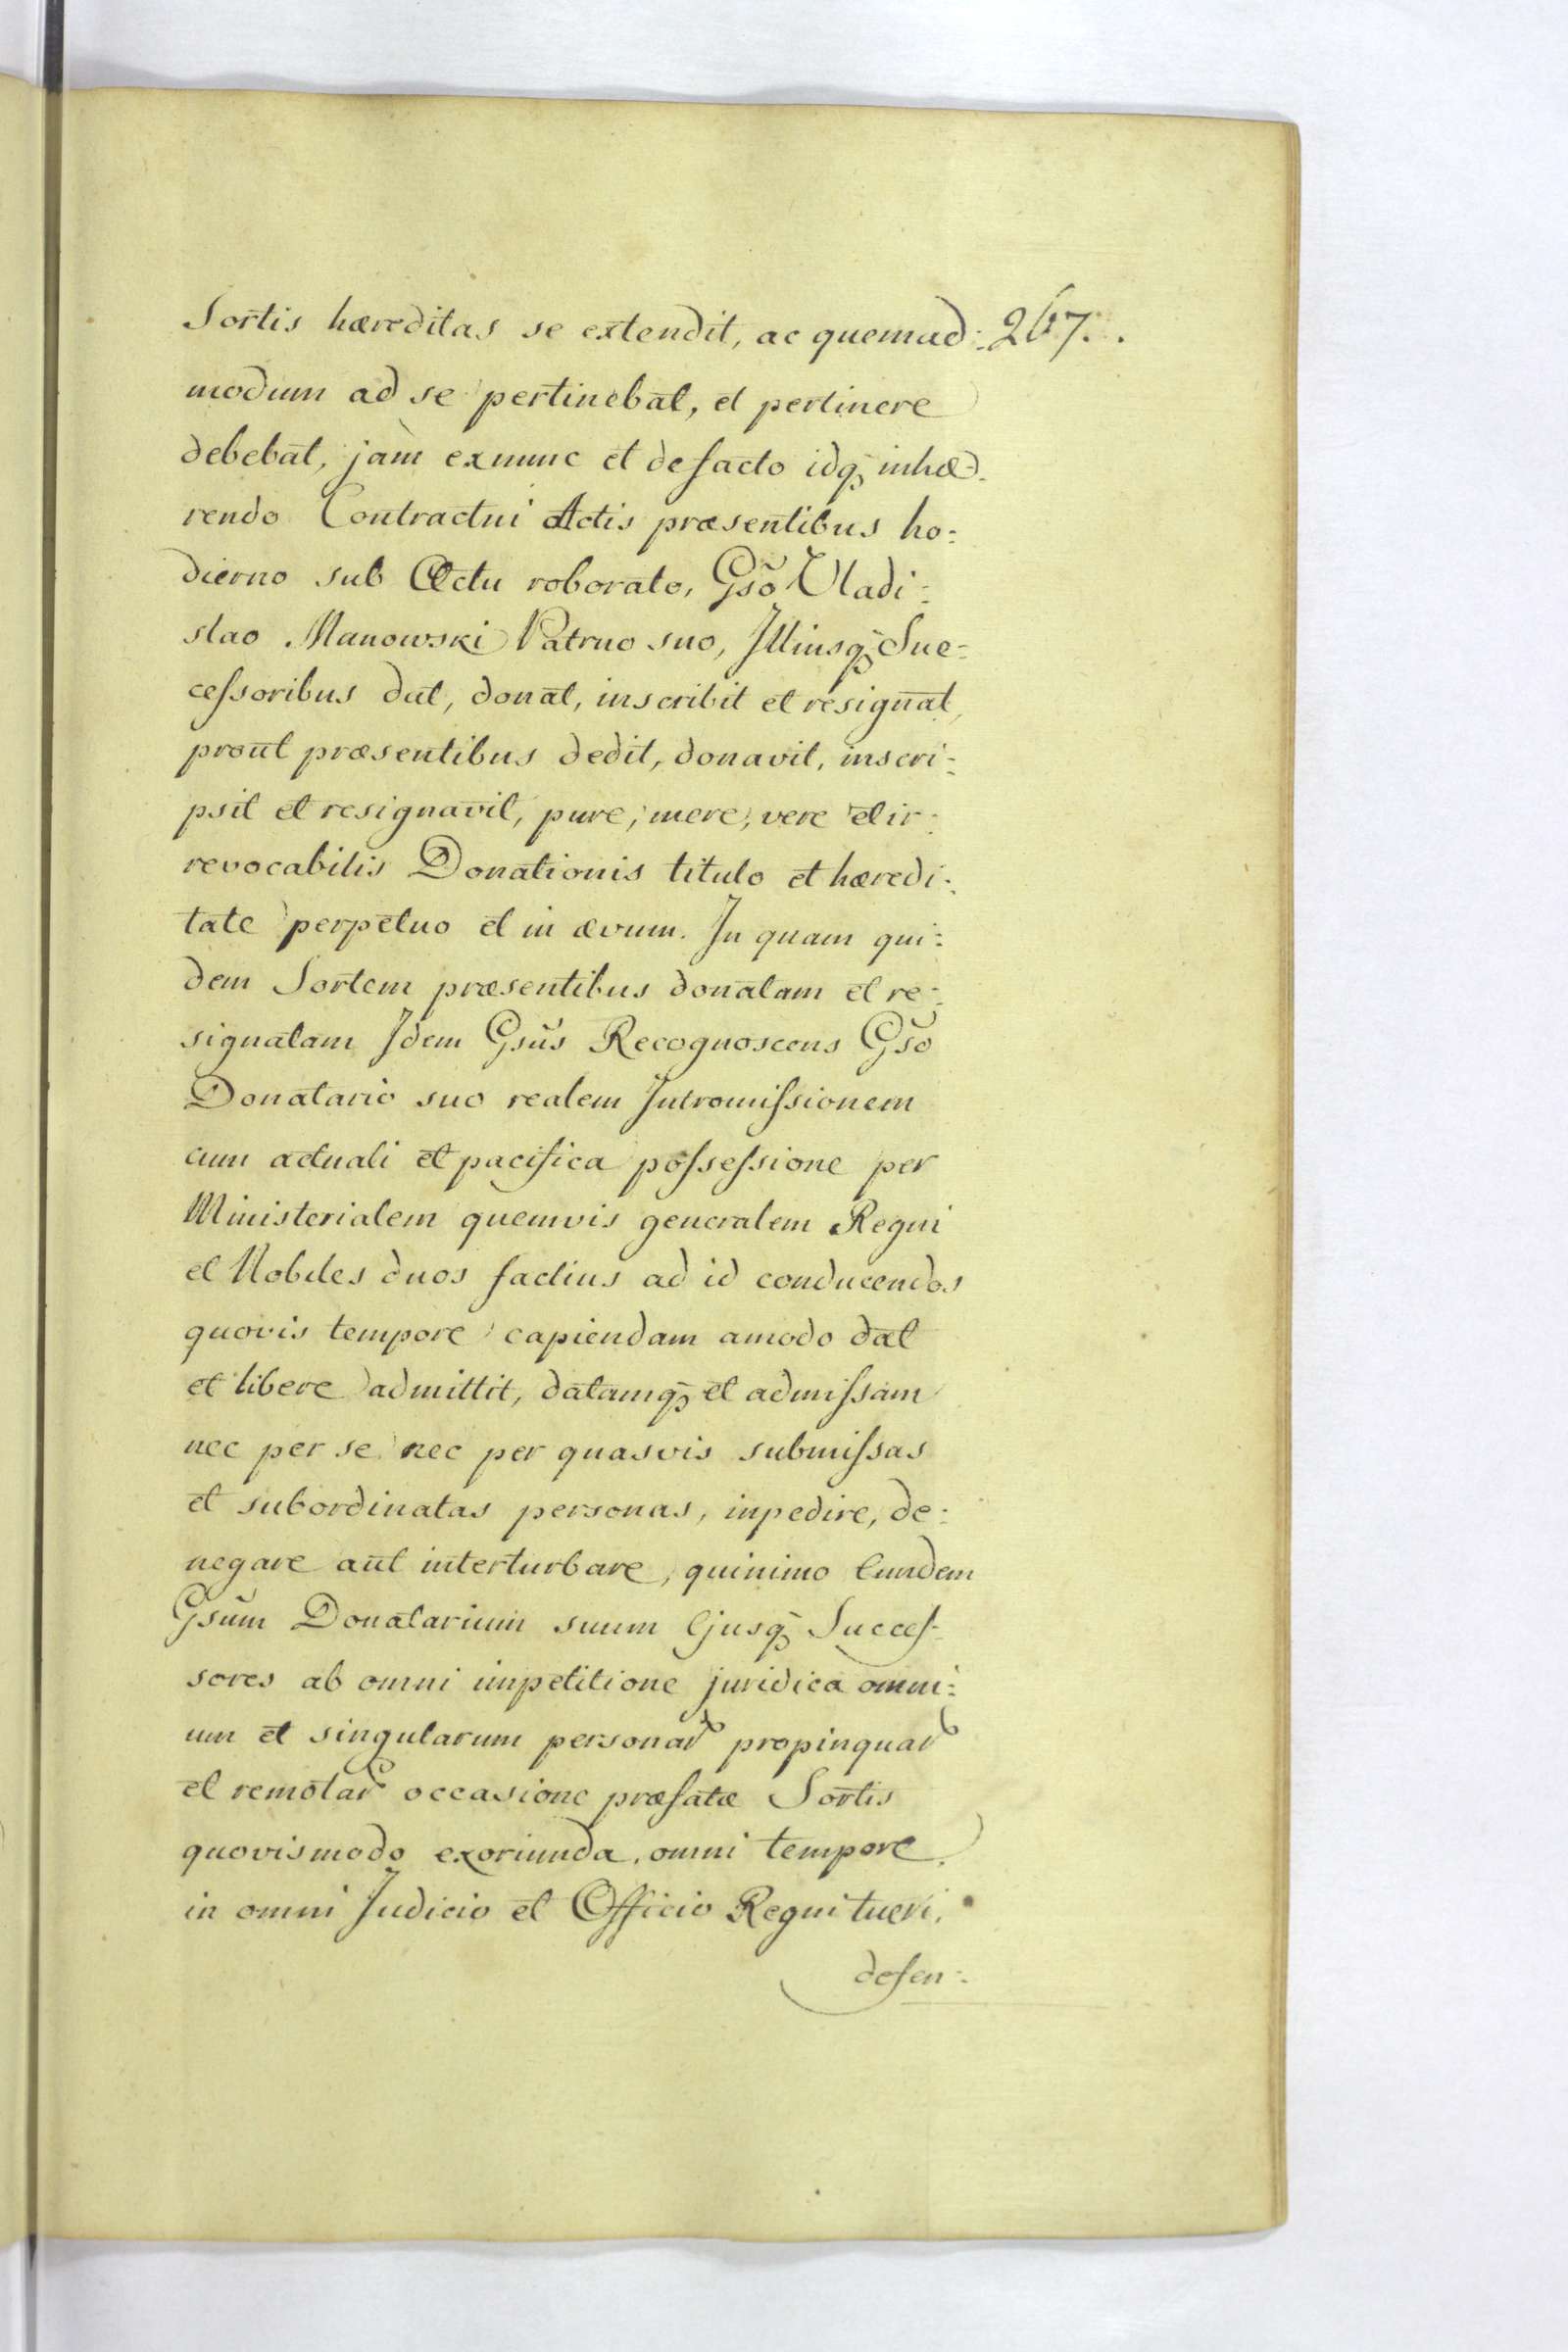 Sortis hæreditas se extendit, ac quemad: 267.
modum ad se pertinebat, et pertinere
debebat, jam exnunc et defacto idq₃ inhæ:
rendo Contractui Actis præsentibus ho:
dierno sub Actu roborato, Gso Vladi:
slao Manowski Patruo suo, Illiusq₃ Suc:
cessoribus dat, donat, inscribit et resignat,
prout præsentibus dedit, donavit, inscri:
psit et resignavit, pure, mere, vere et ir:
revocabilis Donationis titulo et hæredi:
tate perpetuo et in ævum. In quam qui:
dem Sortem præsentibus donatam et re:
signatam Idem Gsus Recognoscens Gso
Donatario suo realem Intromissionem
cum actuali et pacifica possessione per
Ministerialem quemvis generalem Regni
et Nobiles duos factius ad id conducendos
quovis tempore capiendam amodo dat
et libere admittit, datamq₃ et admissam
nec per se nec per quasvis submissas
et subordinatas personas, inpedire, de:
negare aut interturbare, quinimo Eundem
Gsum Donatarium suum Ejusq₃ Succes:
sores ab omni impetitione juridica omni:
um et singularum personar propinquar
et remotar occasione præfatæ Sortis
quovismodo exoriunda, omni tempore
in omni Judicio et Officio Regni tueri,
defen: